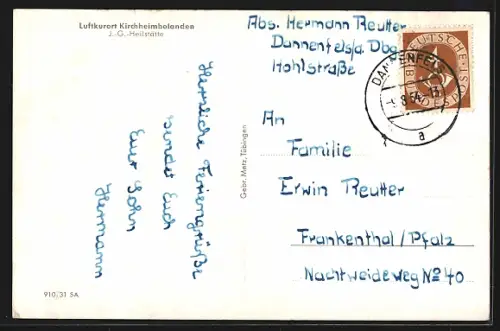 Luftkurort Kirchheimbolanden
J.-G.-Heilstätte
Herrliche Feriengrüße
sendet Euch
Euer Sohn
Hermann
910/31 5A
Gebr. Metz, Tübingen
Abs. Hermann Reutter
Dannenfels/a. Dbg
Hohlstraße
DEUTSCHE
BUNDESPOST
DANNENFELS
a
An
Familie
Erwin Reutter
Frankenthal/Pfalz
Nachtweideweg No 40